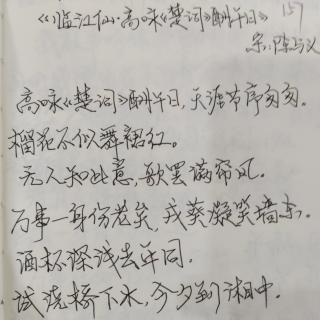 《临江仙·高咏《楚词》酬午日》 157
宋:陈与义
高咏《楚词》酬午日,天涯节序匆匆。
榴花不似舞裙红。
无人知此意,歌罢满帘风。
万事一身伤老矣,戎葵凝笑墙东。
酒杯深浅去年同。
试浇桥下水,今夕到湘中。